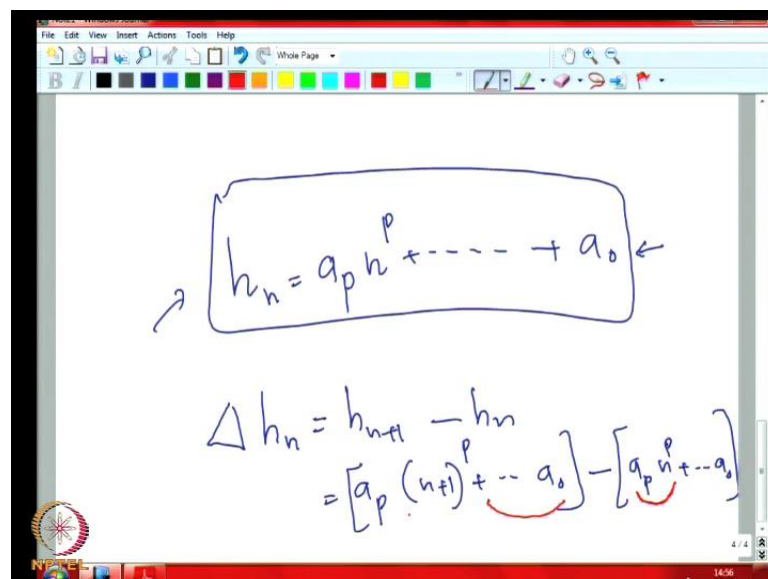 File Edit View Insert Actions Tools Help
Whole Page
B I
hₙ = aₚ nᵖ + ---- + a₀ ←
Δ hₙ = hₙ₊₁ − hₙ
= [aₚ (n+1)ᵖ + -- a₀] − [aₚ nᵖ + -- a₀]
4 / 4
NPTEL
14:56